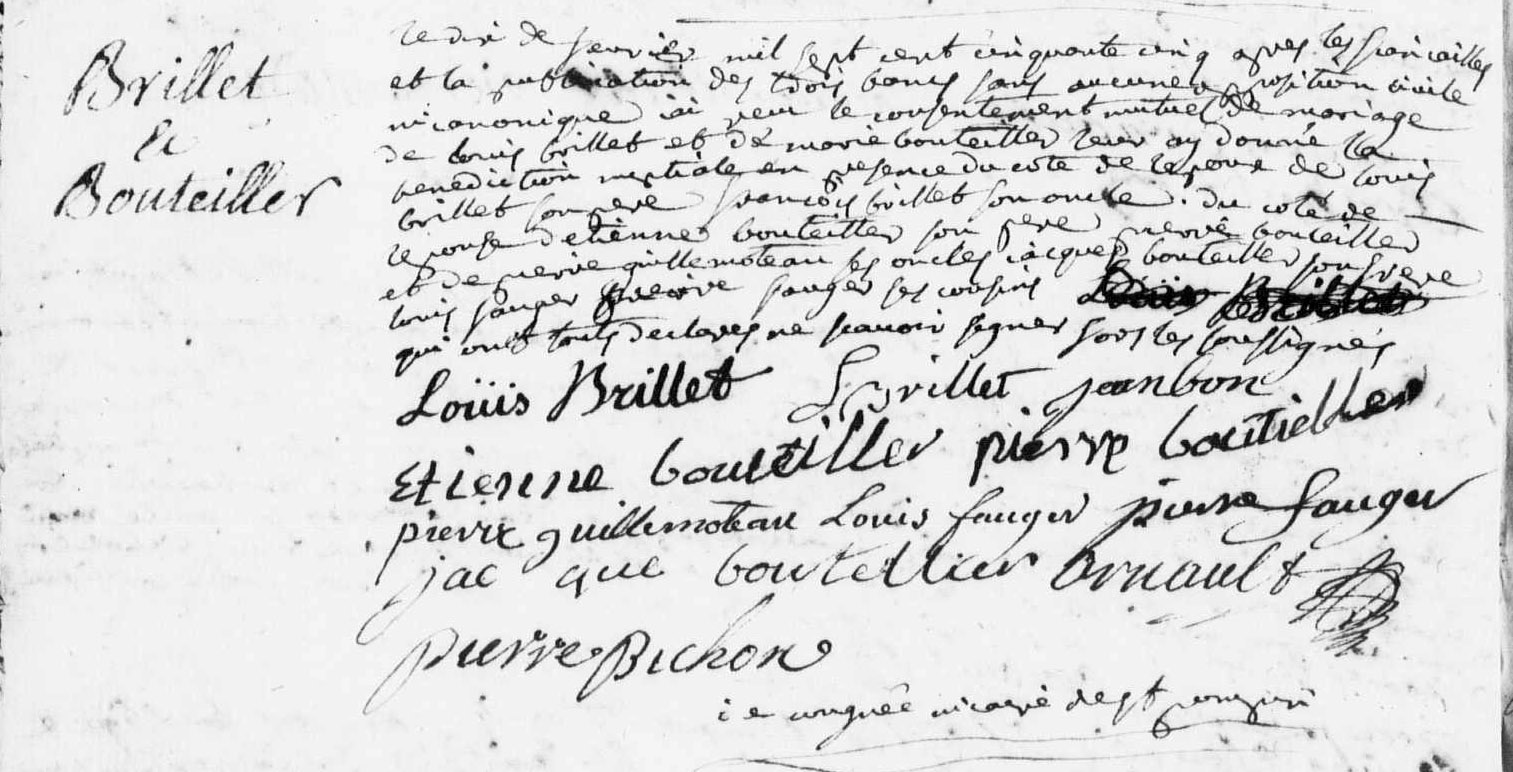 Brillet
et
Bouteiller
le dix de fevrier mil sept cent cinquante cinq apres les fiancailles
et la publication des trois bancs sans aucune oposition civile
ni canonique jai receu le consentement mutuel de mariage
de louis brillet et de marie bouteiller leur ay donné la
benediction nuptiale en presence du cote de lepoux de louis
brillet son pere francois brillet son oncle . du coté de
lepouse detienne bouteiller son pere pierre bouteiller
et de pierre guillemoteau ses oncles jacques bouteiller son frere
louis fauger pierre fauger ses cousins
qui ont touts declares ne scavoir signer fors les soussignés
Loüis Brillet Brillet jean bon
Etienne bouteiller pierre boutieller
pierre guillemoteau Louis fauger pierre fauger
jac que bouteillier Arnault
pierre Bichon
vicaire de st